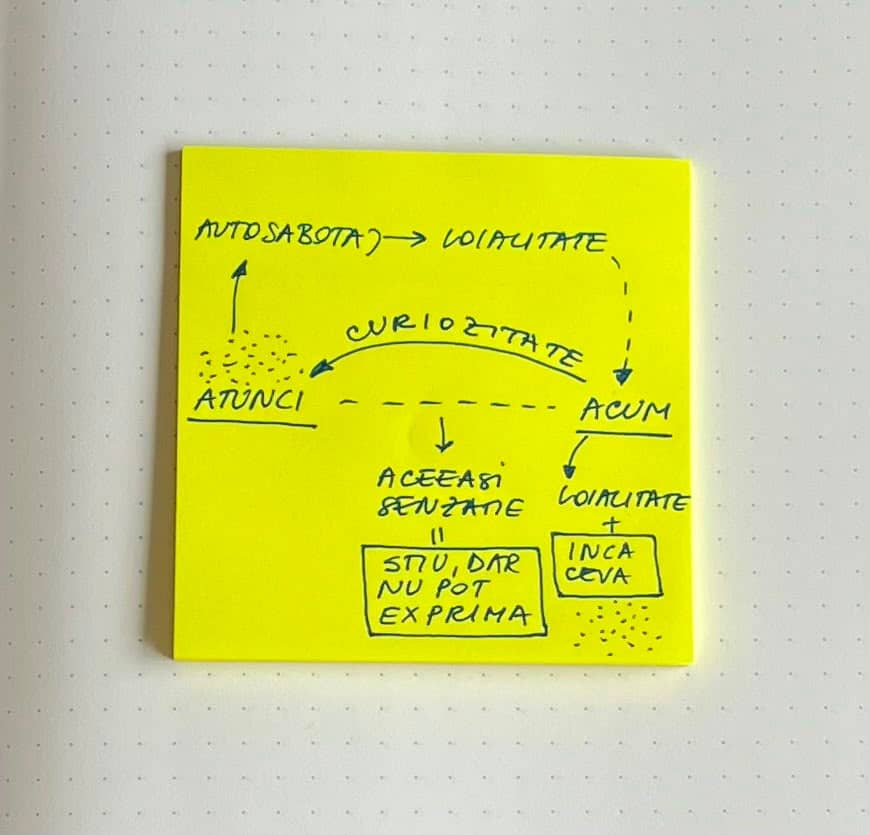 AUTOSABOTAJ → LOIALITATE
CURIOZITATE
ATUNCI
ACUM
ACEEASI
SENZATIE
=
STIU, DAR
NU POT
EXPRIMA
LOIALITATE
+
INCA
CEVA